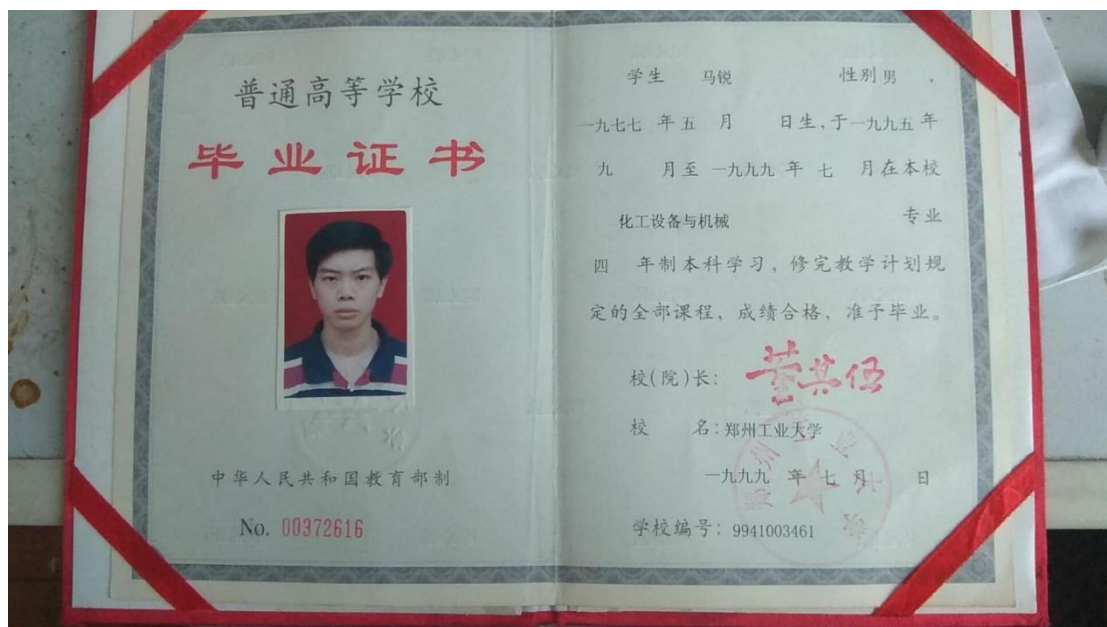 普通高等学校
毕业证书
中华人民共和国教育部制
No. 00372616
学生 马锐 性别 男 、
一九七七 年 五 月 日生，于一九九五 年
九 月至 一九九九 年 七 月在本校
化工设备与机械 专业
四 年制本科学习，修完教学计划规
定的全部课程，成绩合格，准予毕业。
校(院)长: 董其伍
校 名: 郑州工业大学
一九九九 年 七 月 日
学校编号: 9941003461